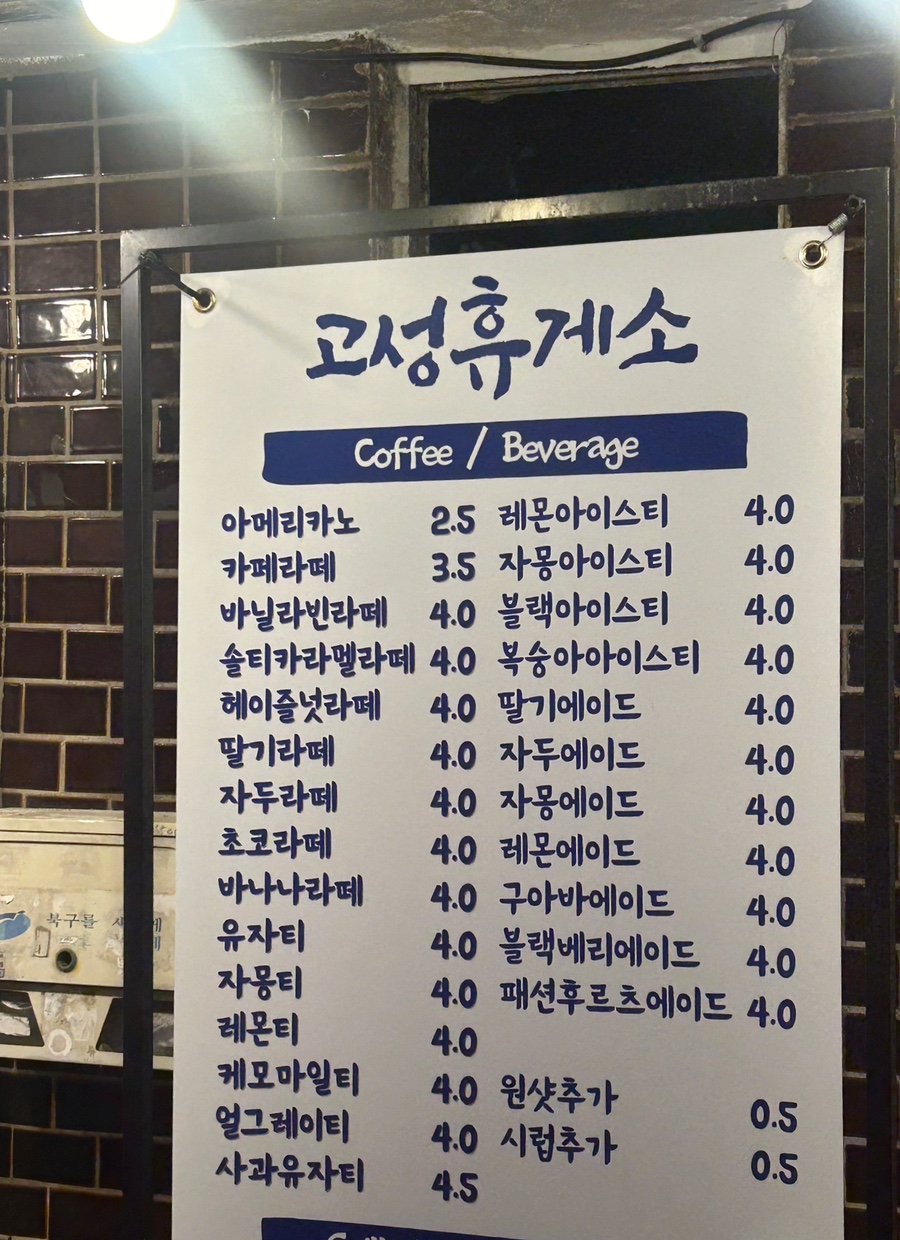 고성휴게소
Coffee / Beverage
아메리카노 2.5
카페라떼 3.5
바닐라빈라떼 4.0
솔티카라멜라떼 4.0
헤이즐넛라떼 4.0
딸기라떼 4.0
자두라떼 4.0
초코라떼 4.0
바나나라떼 4.0
유자티 4.0
자몽티 4.0
레몬티 4.0
케모마일티 4.0
얼그레이티 4.0
사과유자티 4.5
레몬아이스티 4.0
자몽아이스티 4.0
블랙아이스티 4.0
복숭아아이스티 4.0
딸기에이드 4.0
자두에이드 4.0
자몽에이드 4.0
레몬에이드 4.0
구아바에이드 4.0
블랙베리에이드 4.0
패션후르츠에이드 4.0
원샷추가 0.5
시럽추가 0.5
북구를